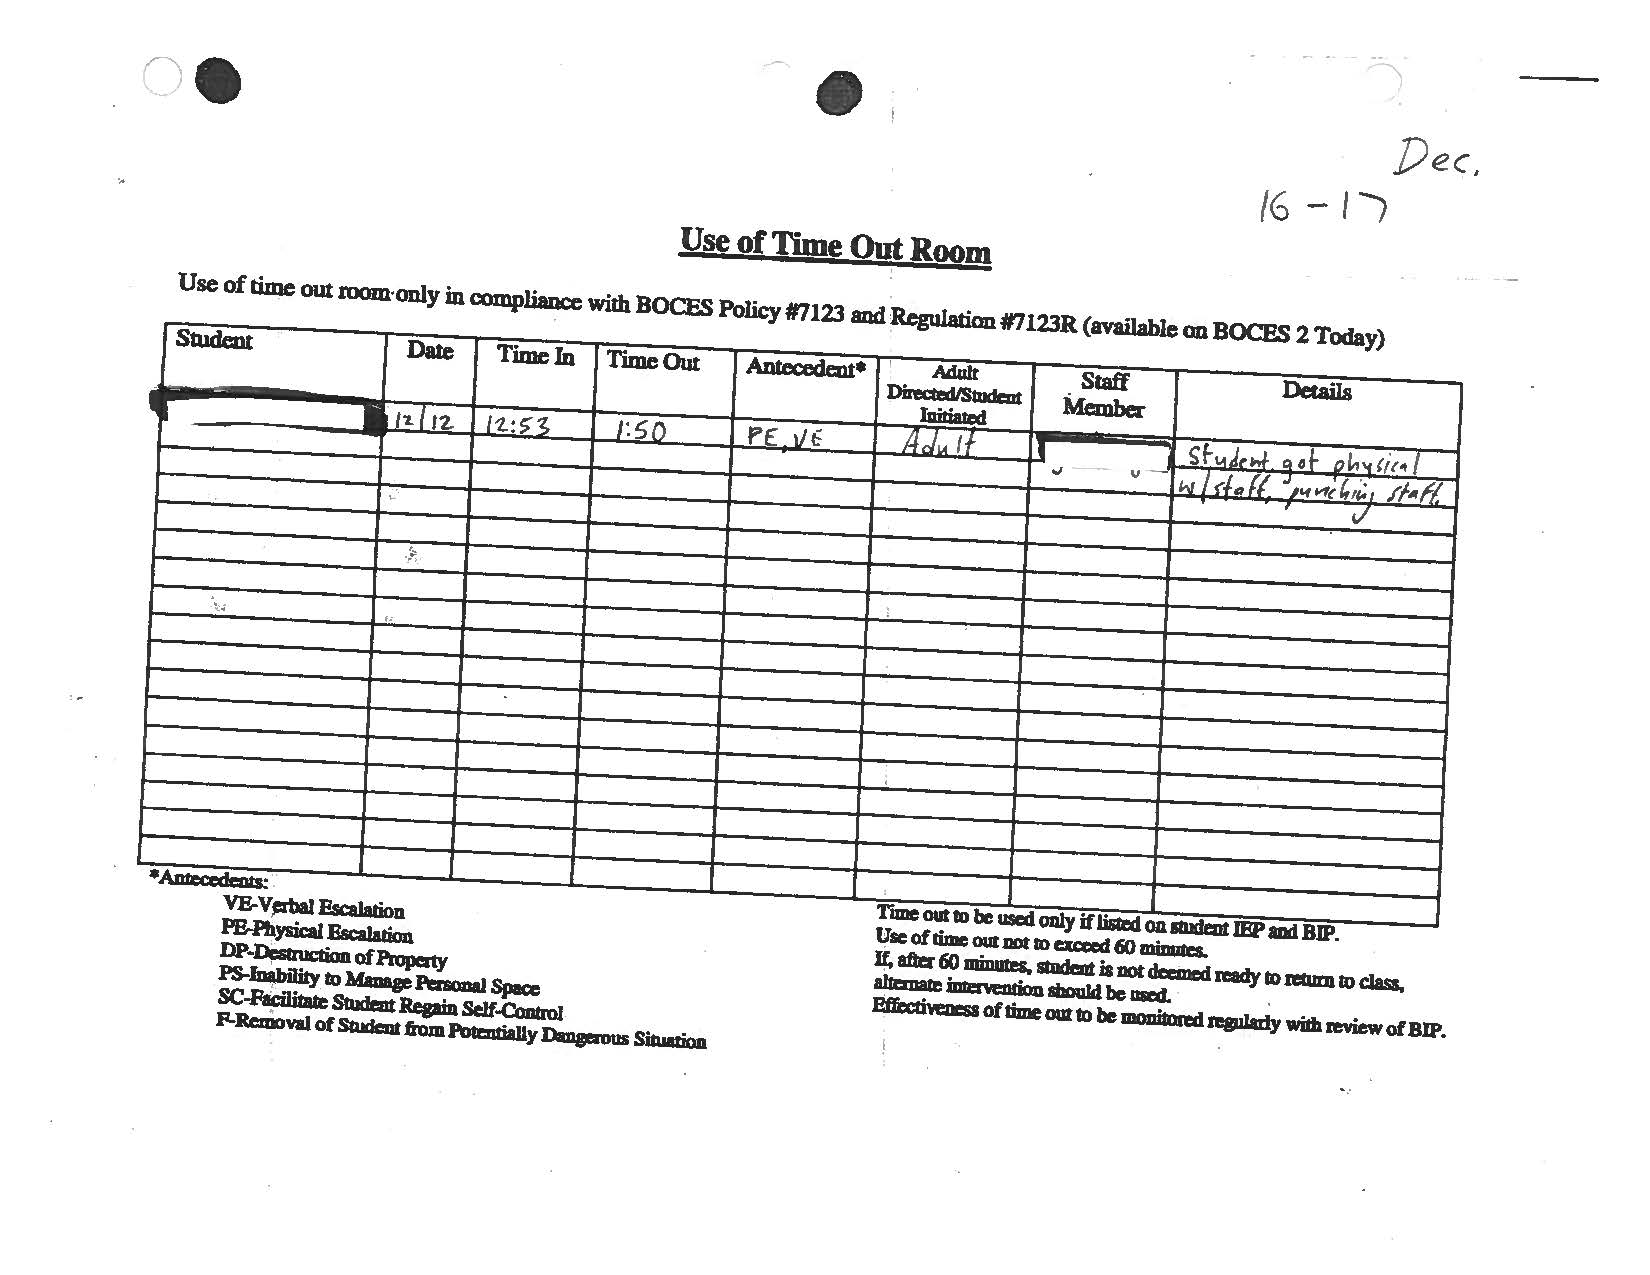 Dec.
16-17
Use of Time Out Room
Use of time out room only in compliance with BOCES Policy #7123 and Regulation #7123R (available on BOCES 2 Today)
Student Date Time In Time Out Antecedent* Adult Directed/Student Initiated Staff Member Details
12/12 12:53 1:50 PE, VE Adult Student got physical
w/staff, punching staff.
*Antecedents:
VE-Verbal Escalation
PE-Physical Escalation
DP-Destruction of Property
PS-Inability to Manage Personal Space
SC-Facilitate Student Regain Self-Control
F-Removal of Student from Potentially Dangerous Situation
Time out to be used only if listed on student IEP and BIP.
Use of time out not to exceed 60 minutes.
If, after 60 minutes, student is not deemed ready to return to class,
alternate intervention should be used.
Effectiveness of time out to be monitored regularly with review of BIP.